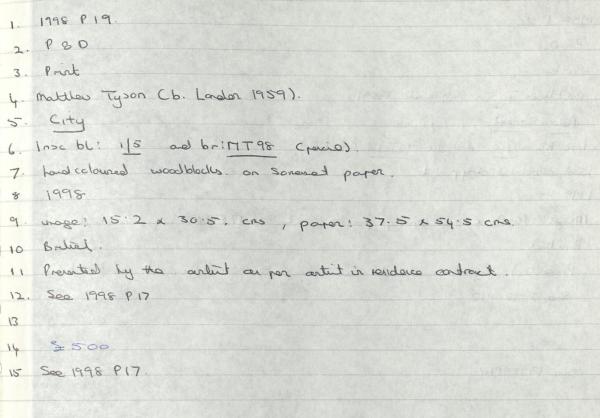 1. 1998 P 19.
2. P & D
3. Print
4. Matthew Tyson (b. London 1959).
5. City
6. Insc bl: 1/5 and br: MT98 (pencil).
7. handcoloured woodblocks on Somerset paper.
8 1998
9. image: 15.2 x 30.5. cms, paper: 37.5 x 54.5 cms.
10 British.
11 Presented by the artist as per artist in residence contract.
12. See 1998 P17
13
14 £ 500
15 See 1998 P17.